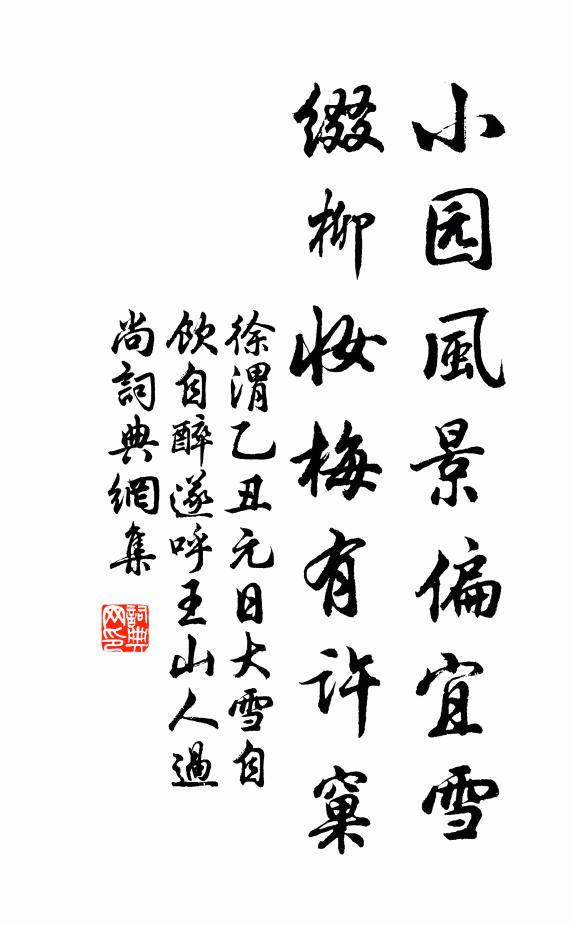 小园風景偏宜雪
綴柳妝梅有許窠
徐渭乙丑元日大雪自
飲自醉遂呼王山人過
尚詞典網集
詞典网印